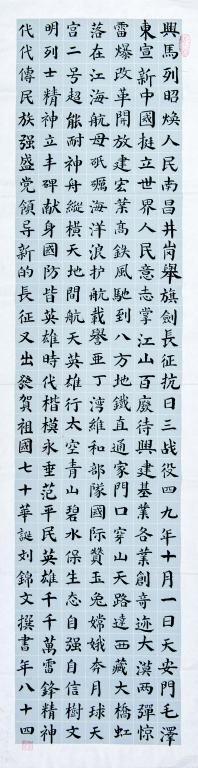 興馬列昭煥人民南昌井崗舉旗劍長征抗日三战役四九年十月一日天安門毛澤
東宣新中國挺立世界人民意志掌江山百廢待興建基業各業創奇迹大漠两彈惊
雷爆改革開放建宏業高鉄風馳到八方地鐵直通家門口穿山天路達西藏大橋虹
落在江海航母海洋浪护航載譽亜丁湾維和部隊國际贊玉兔嫦娥奔月球天
宫二号超能耐神舟縱橫天地間航天英雄行太空青山碧水保生态自强自信樹文
明列士精神立丰碑献身國防昔英雄時代楷模永垂范平民英雄千千萬雷鋒精神
代代傳民族强盛党領导新的長征又出發賀祖國七十華誕刘錦文撰書年八十四